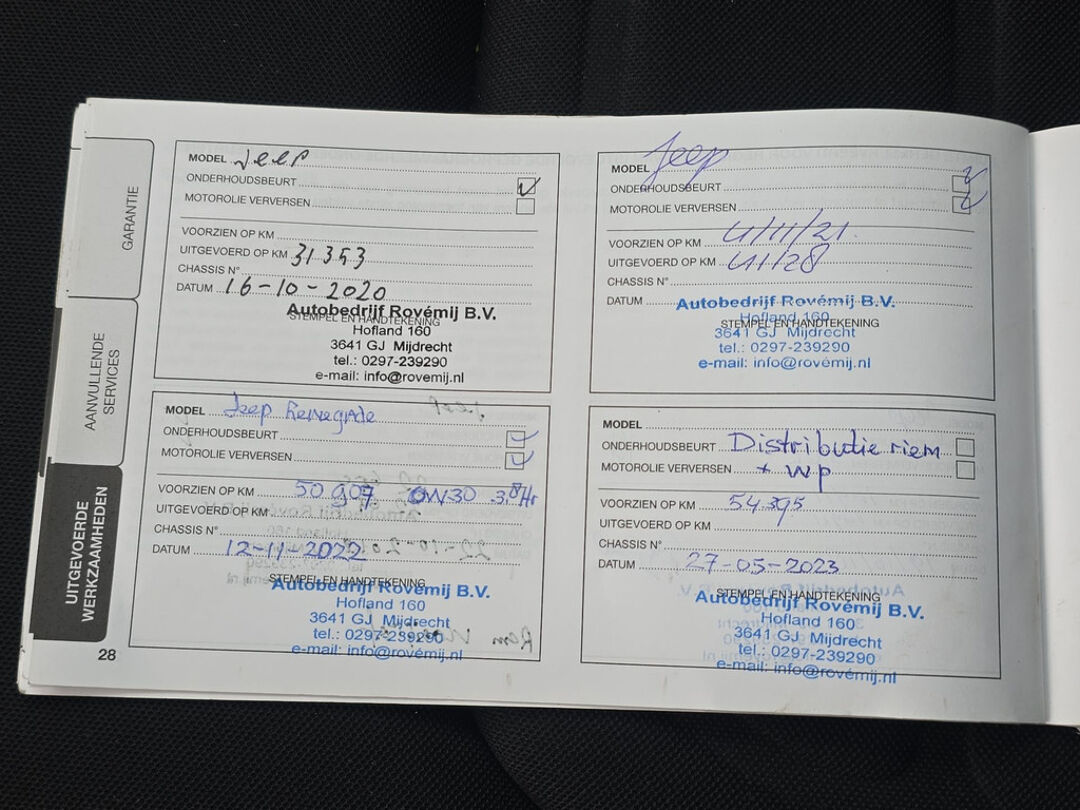 GARANTIE
AANVULLENDE
SERVICES
UITGEVOERDE
WERKZAAMHEDEN
28
MODEL Jeep
ONDERHOUDSBEURT
MOTOROLIE VERVERSEN
VOORZIEN OP KM
UITGEVOERD OP KM 31353
CHASSIS N°
DATUM 16-10-2020
STEMPEL EN HANDTEKENING
Autobedrijf Rovémij B.V.
Hofland 160
3641 GJ Mijdrecht
tel.: 0297-239290
e-mail: info@rovemij.nl
MODEL Jeep
ONDERHOUDSBEURT
MOTOROLIE VERVERSEN
VOORZIEN OP KM 4/11/21
UITGEVOERD OP KM 41128
CHASSIS N°
DATUM
Autobedrijf Rovémij B.V.
Hofland 160
STEMPEL EN HANDTEKENING
3641 GJ Mijdrecht
tel.: 0297-239290
e-mail: info@rovemij.nl
MODEL Jeep Renegade
ONDERHOUDSBEURT
MOTOROLIE VERVERSEN
VOORZIEN OP KM 50907 0W30
UITGEVOERD OP KM
CHASSIS N°
DATUM 12-11-2022
STEMPEL EN HANDTEKENING
Autobedrijf Rovémij B.V.
Hofland 160
3641 GJ Mijdrecht
tel.: 0297-239290
e-mail: info@rovémij.nl
MODEL
ONDERHOUDSBEURT Distributie riem
MOTOROLIE VERVERSEN + WP
VOORZIEN OP KM 54395
UITGEVOERD OP KM
CHASSIS N°
DATUM 27-05-2023
STEMPEL EN HANDTEKENING
Autobedrijf Rovémij B.V.
Hofland 160
3641 GJ Mijdrecht
tel.: 0297-239290
e-mail: info@rovémij.nl